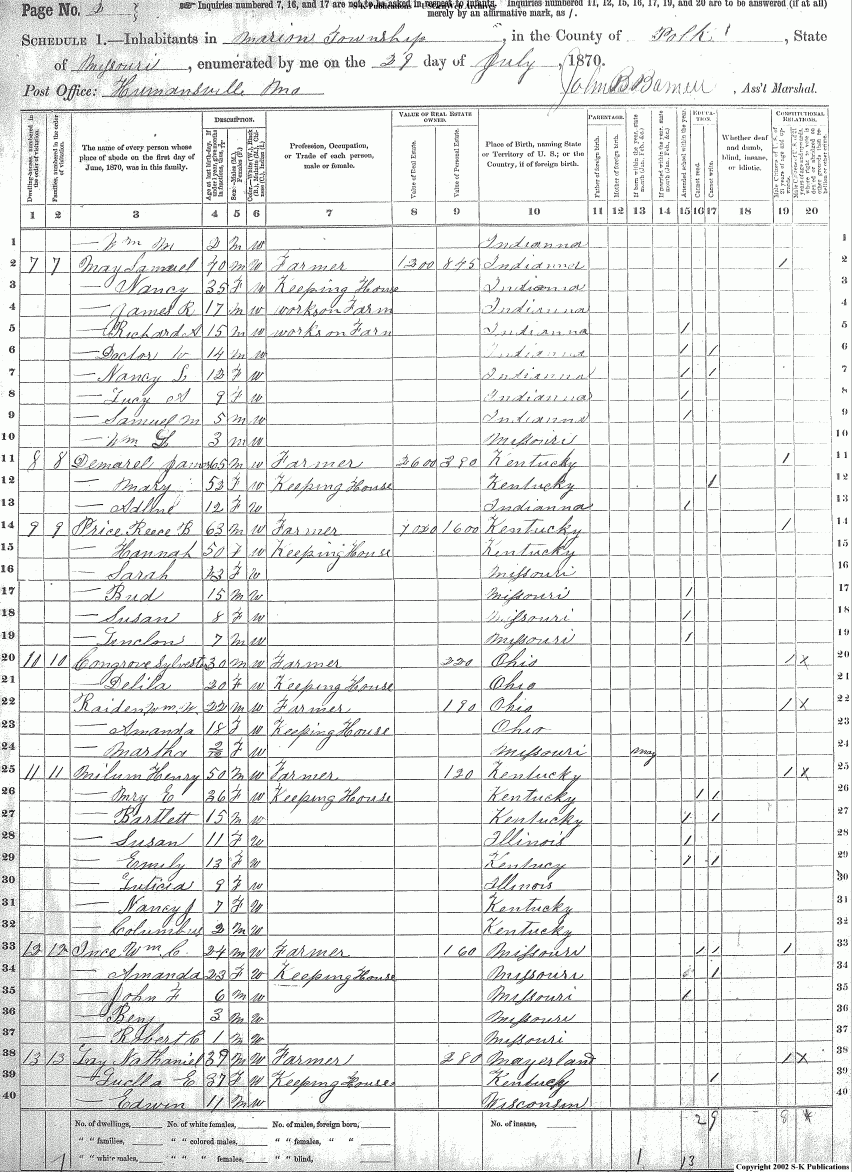 Page No. 2
Inquiries numbered 7, 16, and 17 are not to be asked in respect to infants. Inquiries numbered 11, 12, 15, 16, 17, 19, and 20 are to be answered (if at all)
merely by an affirmative mark, as /.
SCHEDULE 1.—Inhabitants in Marion Township, in the County of Polk, State
of Missouri, enumerated by me on the 29 day of July, 1870.
Post Office: Humansville Mo , Ass't Marshal.
DESCRIPTION. VALUE OF REAL ESTATE OWNED. PARENTAGE. EDUCATION. CONSTITUTIONAL RELATIONS.
Dwelling-houses, numbered in the order of visitation.
Families, numbered in the order of visitation.
The name of every person whose place of abode on the first day of June, 1870, was in this family.
Profession, Occupation, or Trade of each person, male or female.
Value of Real Estate.
Value of Personal Estate.
Place of Birth, naming State or Territory of U. S.; or the Country, if of foreign birth.
Father of foreign birth.
Mother of foreign birth.
Attended school within the year.
Cannot read.
Cannot write.
Whether deaf and dumb, blind, insane, or idiotic.
1 2 3 4 5 6 7 8 9 10 11 12 13 14 15 16 17 18 19 20
1 — Wm M 2 M W Indianna 1
2 7 7 May Samuel 40 M W Farmer 1200 845 Indianna / 2
3 — Nancy 35 F W Keeping House Indianna 3
4 — James R 17 M W works on Farm Indianna 4
5 — Richard A 15 M W works on Farm Indianna / 5
6 — Doctor W 14 M W Indianna / / 6
7 — Nancy L 12 F W Indianna / / 7
8 — Lucy A 9 F W Indianna / 8
9 — Samuel M 5 M W Indianna / 9
10 — Wm L 3 M W Missouri 10
11 8 8 Demarel James 65 M W Farmer 2600 390 Kentucky / 11
12 — Mary 52 F W Keeping House Kentucky / 12
13 — Adline 12 F W Indianna / 13
14 9 9 Price Reece B 63 M W Farmer 7020 1600 Kentucky / 14
15 — Hannah 50 F W Keeping House Kentucky 15
16 — Sarah 23 F W Missouri 16
17 — Bud 15 M W Missouri / 17
18 — Susan 8 F W Missouri / 18
19 — 7 M W Missouri / 19
20 10 10 Congrove Sylvester 30 M W Farmer 220 Ohio / X 20
21 — Delila 20 F W Keeping House Ohio 21
22 Raiden Wm W 22 M W Farmer 190 Ohio / X 22
23 — Amanda 18 F W Keeping House Ohio 23
24 — Martha 2/12 F W Missouri May 24
25 11 11 Milum Henry 50 M W Farmer 120 Kentucky / X 25
26 — Mry E 36 F W Keeping House Kentucky / / 26
27 — Bartlett 15 M W Kentucky / / 27
28 — Susan 11 F W Illinois / 28
29 — Emily 13 F W Kentucy / / 29
30 — Luticia 9 F W Illinois 30
31 — Nancy J 7 F W Kentucky 31
32 — Columbus 2 M W Kentucky 32
33 12 12 Ince Wm C. 24 M W Farmer 160 Missouri / / / 33
34 — Amanda 23 F W Keeping House Missouri / 34
35 — John F 6 M W Missouri / 35
36 — Benj 3 M W Missouri 36
37 — Robert C 1 M W Missouri 37
38 13 13 Nathaniel 39 M W Farmer 280 Mayerland / X 38
39 — Luella E 37 F W Keeping House Kentucky / 39
40 — Edwin 11 M W Wisconsin 40
No. of dwellings, No. of white females, No. of males, foreign born, No. of insane, 2 9 8
" " families, " " colored males, " " females, " "
" " white males, " " " females, " " blind, 1 13
Copyright 2002 S-K Publications